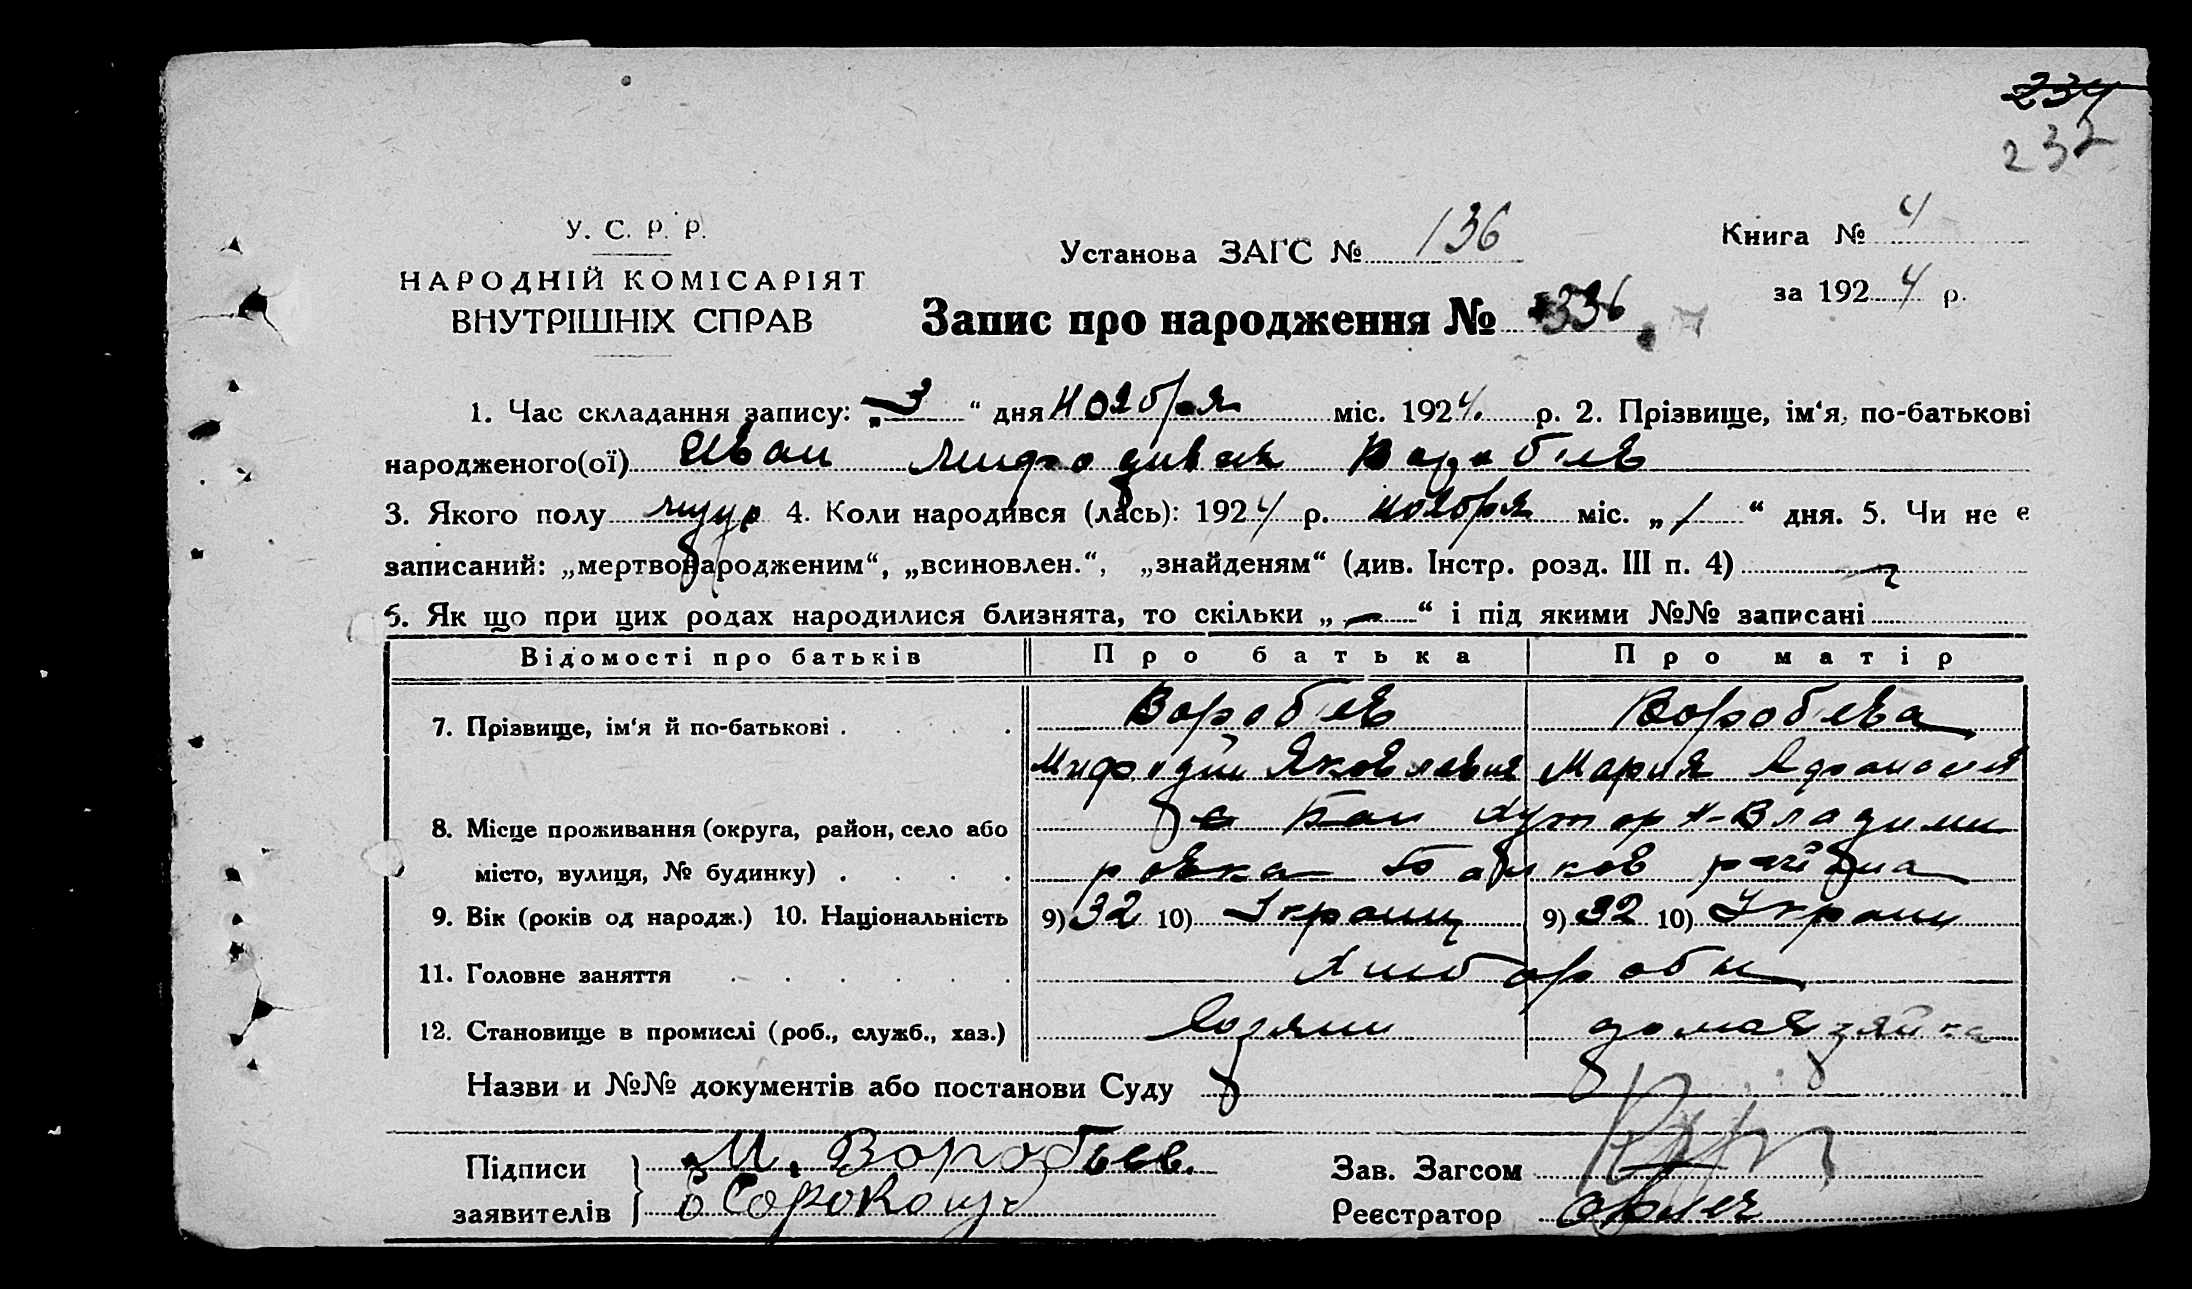 234
232
У. С. Р. Р.
НАРОДНІЙ КОМІСАРІЯТ
ВНУТРІШНІХ СПРАВ
Установа ЗАГС № 136
Книга № 4
за 1924 р.
Запис про народження № 336
1. Час складання запису: „3“ дня ноября міс. 1924. р. 2. Прізвище, ім‘я, по-батькові
народженого(ої) Иван Мифодиевич Воробіев
3. Якого полу муж 4. Коли народився (лась): 1924 р. ноября міс. „1“ дня. 5. Чи не є
записаний: „мертвонародженим“, „всиновлен.“, „знайденям“ (див. Інстр. розд. III п. 4)
6. Як що при цих родах народилися близнята, то скільки „—“ і під якими №№ записані
Відомості про батьків Про батька Про матір
7. Прізвище, ім‘я й по-батькові Воробіев Воробіева
Мифодий Яковлевич Мария
8. Місце проживання (округа, район, село або Хутор Н-Владими
місто, вулиця, № будинку) ровка района
9. Вік (років од народж.) 10. Національність 9) 32 10) Украин 9) 32 10) Украин
11. Головне заняття Хлиборобы
12. Становище в промислі (роб., служб., хаз.) Хозяин домохозяйка
Назви и №№ документів або постанови Суду
Підписи М. Воробьев. Зав. Загсом
заявителів Реєстратор